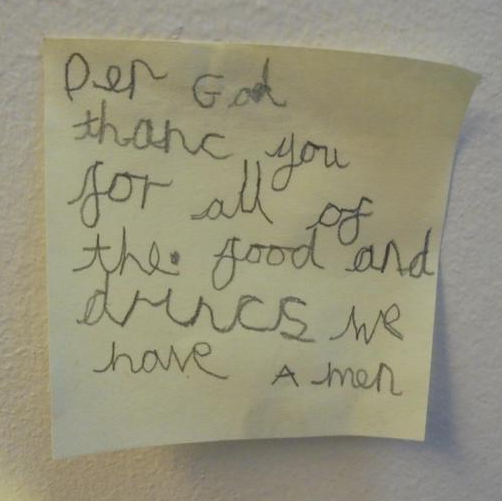 Der God
thanc you
for all of
the food and
drincs we
have Amen